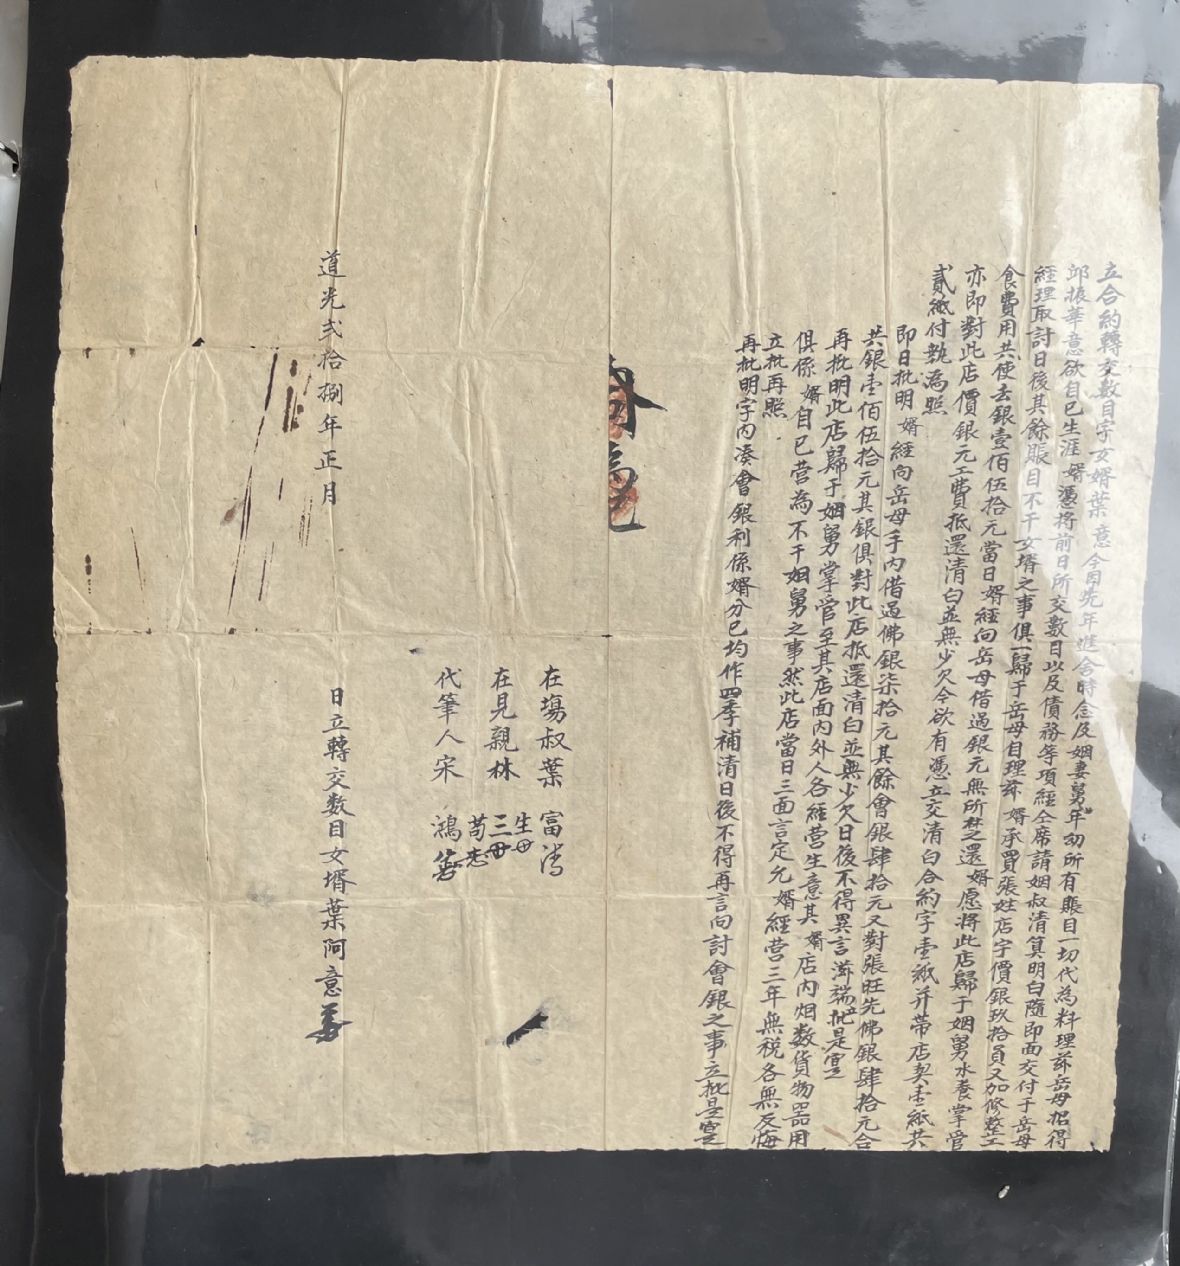 立合約轉交數目字女婿葉意今因先年進舍時念及姻妻舅年幼所有賬目一切代為料理茲岳母招得
邱振華意欲自己生涯婿憑將前日所交數目以及債務等項經仝席請姻叔清算明白隨即面交付于岳母
經理取討日後其餘賬目不干女婿之事俱一歸于岳母自理茲婿承買張姓店字價銀玖拾員又加修整工
食費用共使去銀壹佰伍拾元當日婿經向岳母借過銀元無所措之還婿愿將此店歸于姻舅永養掌管
亦即對此店價銀元工費抵還清白並無少欠今欲有憑立交清白合約字壹紙并帶店契壹紙共
貳紙付執為照
即日批明婿經向岳母手內借過佛銀柒拾元其餘會銀肆拾元又對張旺先佛銀肆拾元合
共銀壹佰伍拾元其銀俱對此店抵還清白並無少欠日後不得異言滋端批是寔
再批明此店歸于姻舅掌管至其店面內外人各經營生意其婿店內烟数貨物器用
俱係婿自己营為不干姻舅之事然此店當日三面言定允婿經营三年無税各無反悔
立批再照
再批明字內湊會銀利係婿分已均作四季補清日後不得再言向討會銀之事立批是寔
在塲叔葉富
在見親林生毋
三毋
苟
代筆人宋鴻
道光弍拾捌年正月 日立轉交數目女壻葉阿意